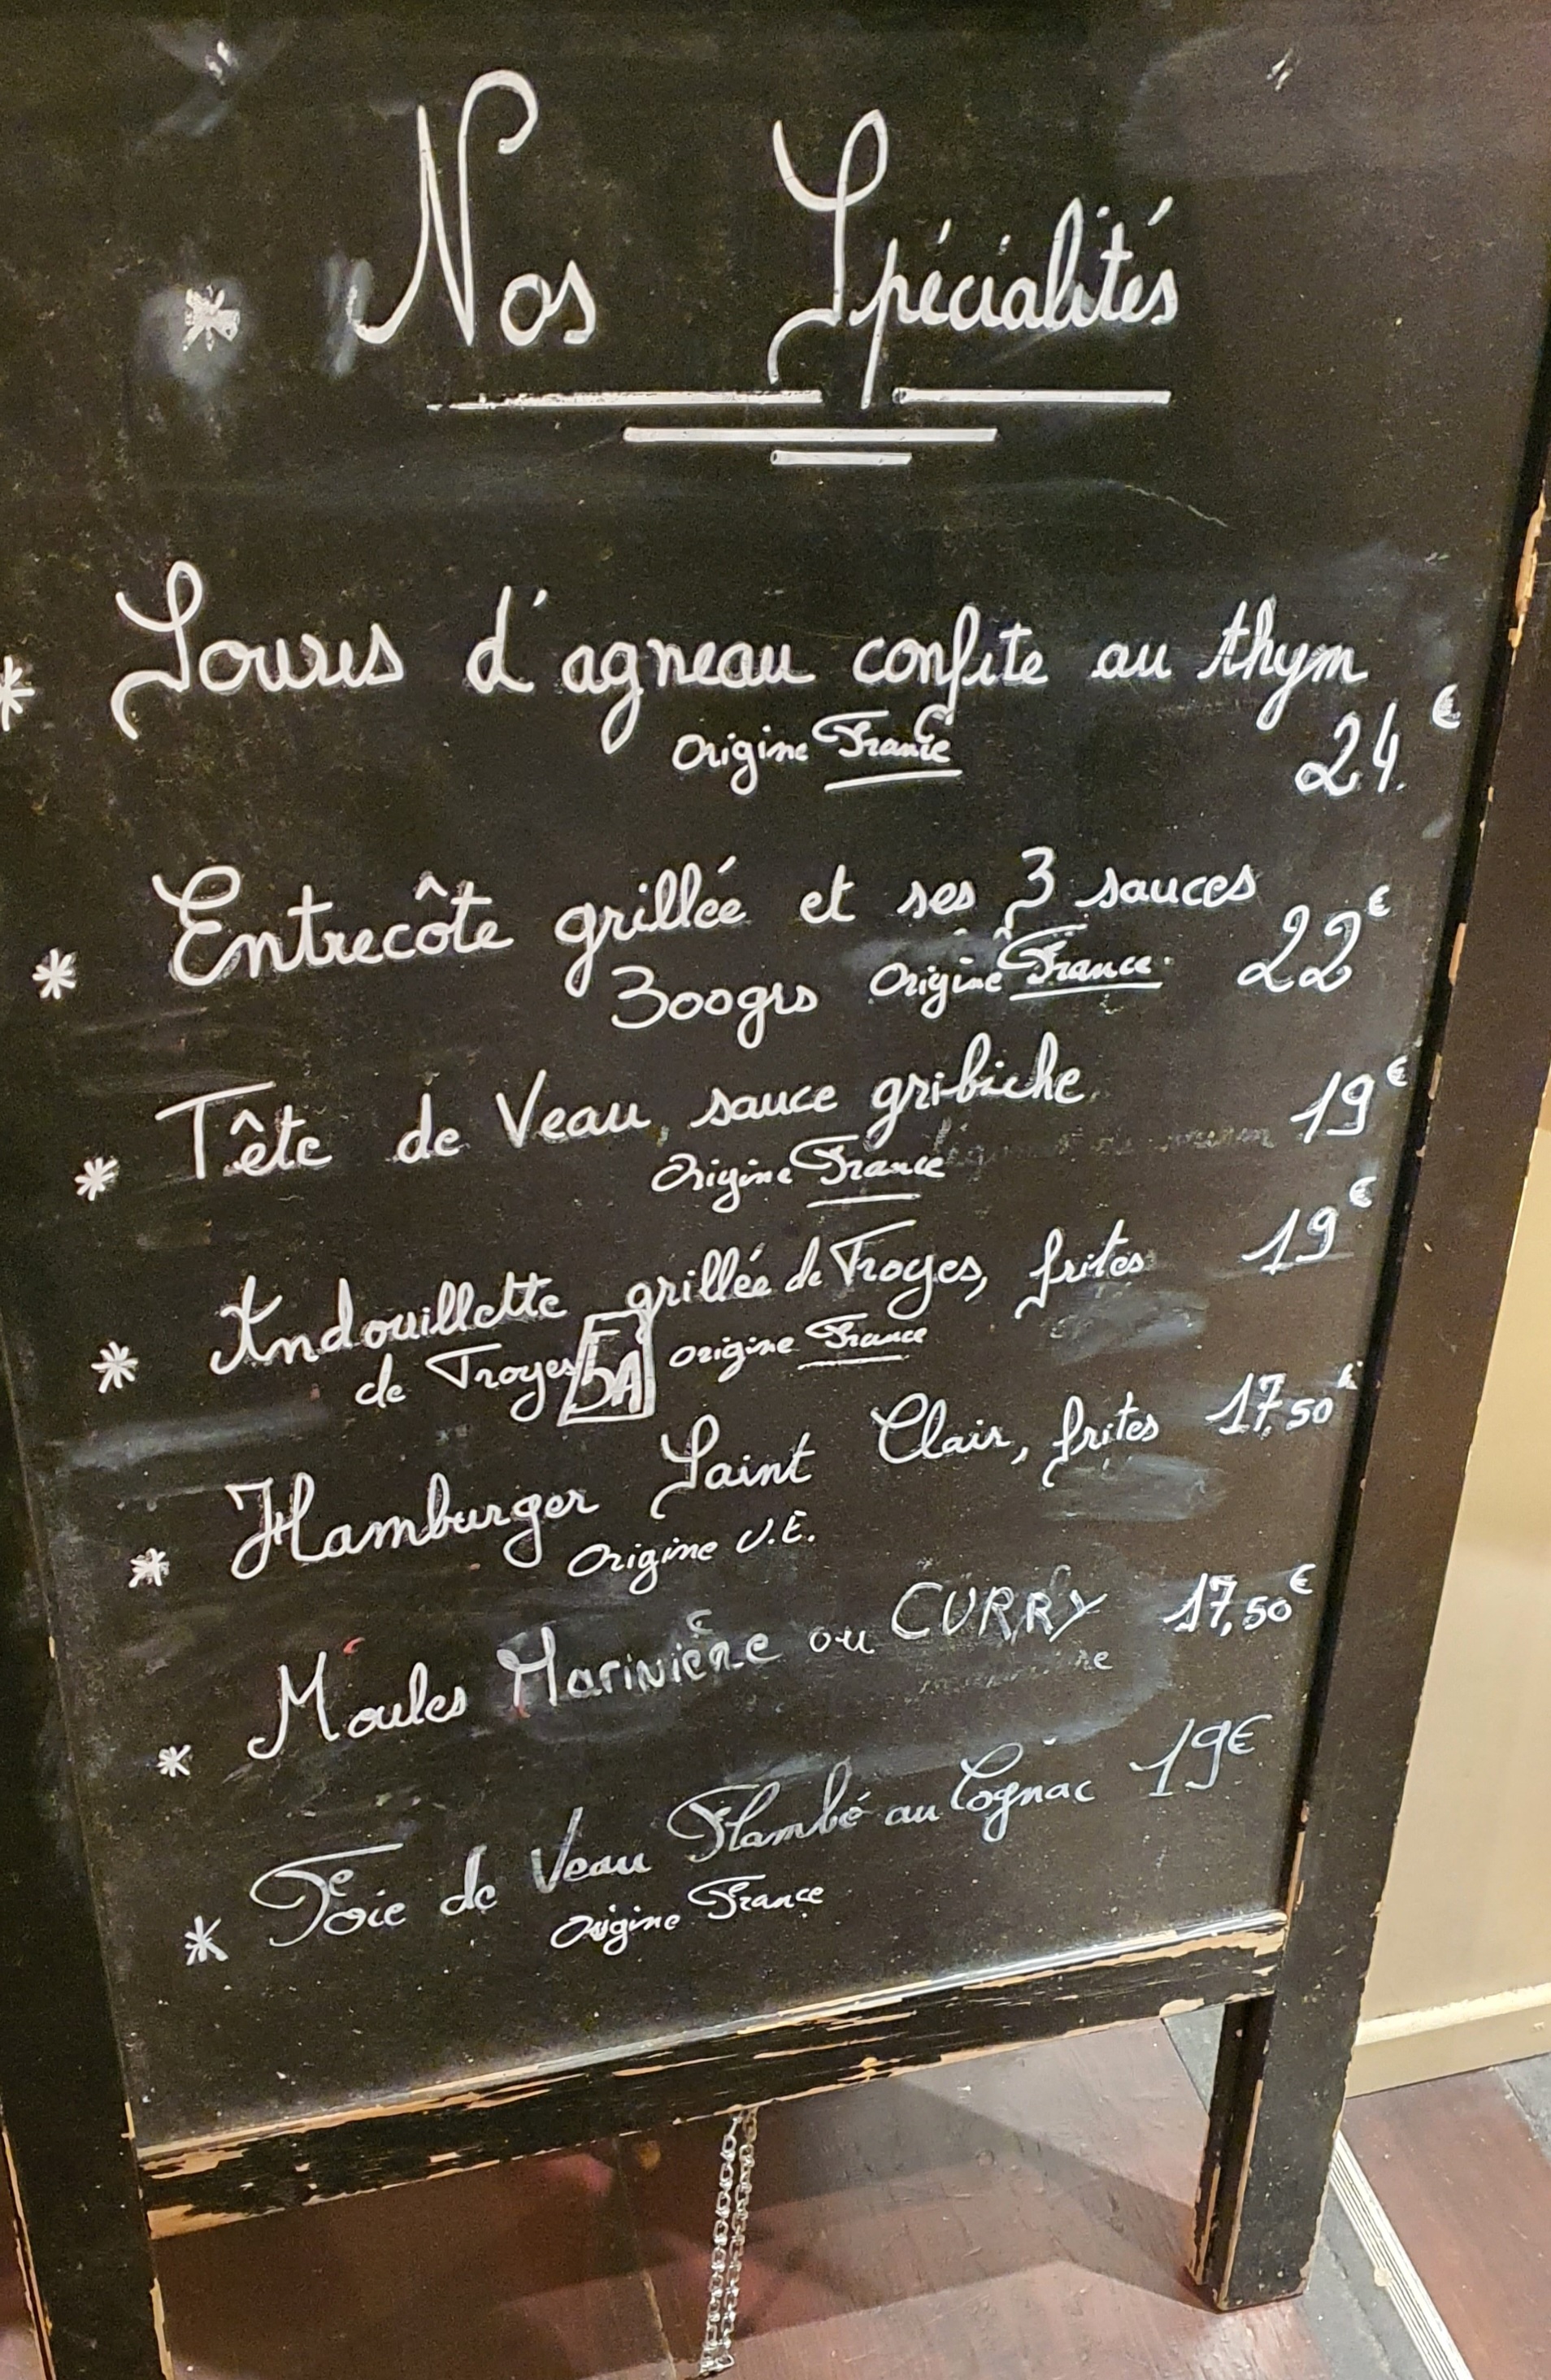 * Nos Spécialités
* Souris d'agneau confite au thym
Origine France 24€
* Entrecôte grillée et ses 3 sauces
300grs Origine France 22€
* Tête de Veau, sauce gribiche 19€
Origine France
* Andouillette grillée de Troyes, frites 19€
de Troyes 5A origine France
* Hamburger Saint Clair, frites 17,50€
Origine U.E.
* Moules Marinière ou CURRY 17,50€
* Foie de Veau Flambé au Cognac 19€
Origine France